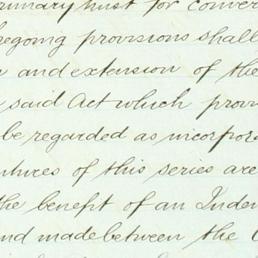 trust for conver
regoing provisions shall
and extension of the
said Act which prov
be regarded as incorpora
ntures of this series are
the benefit of an Inden
nd made between the